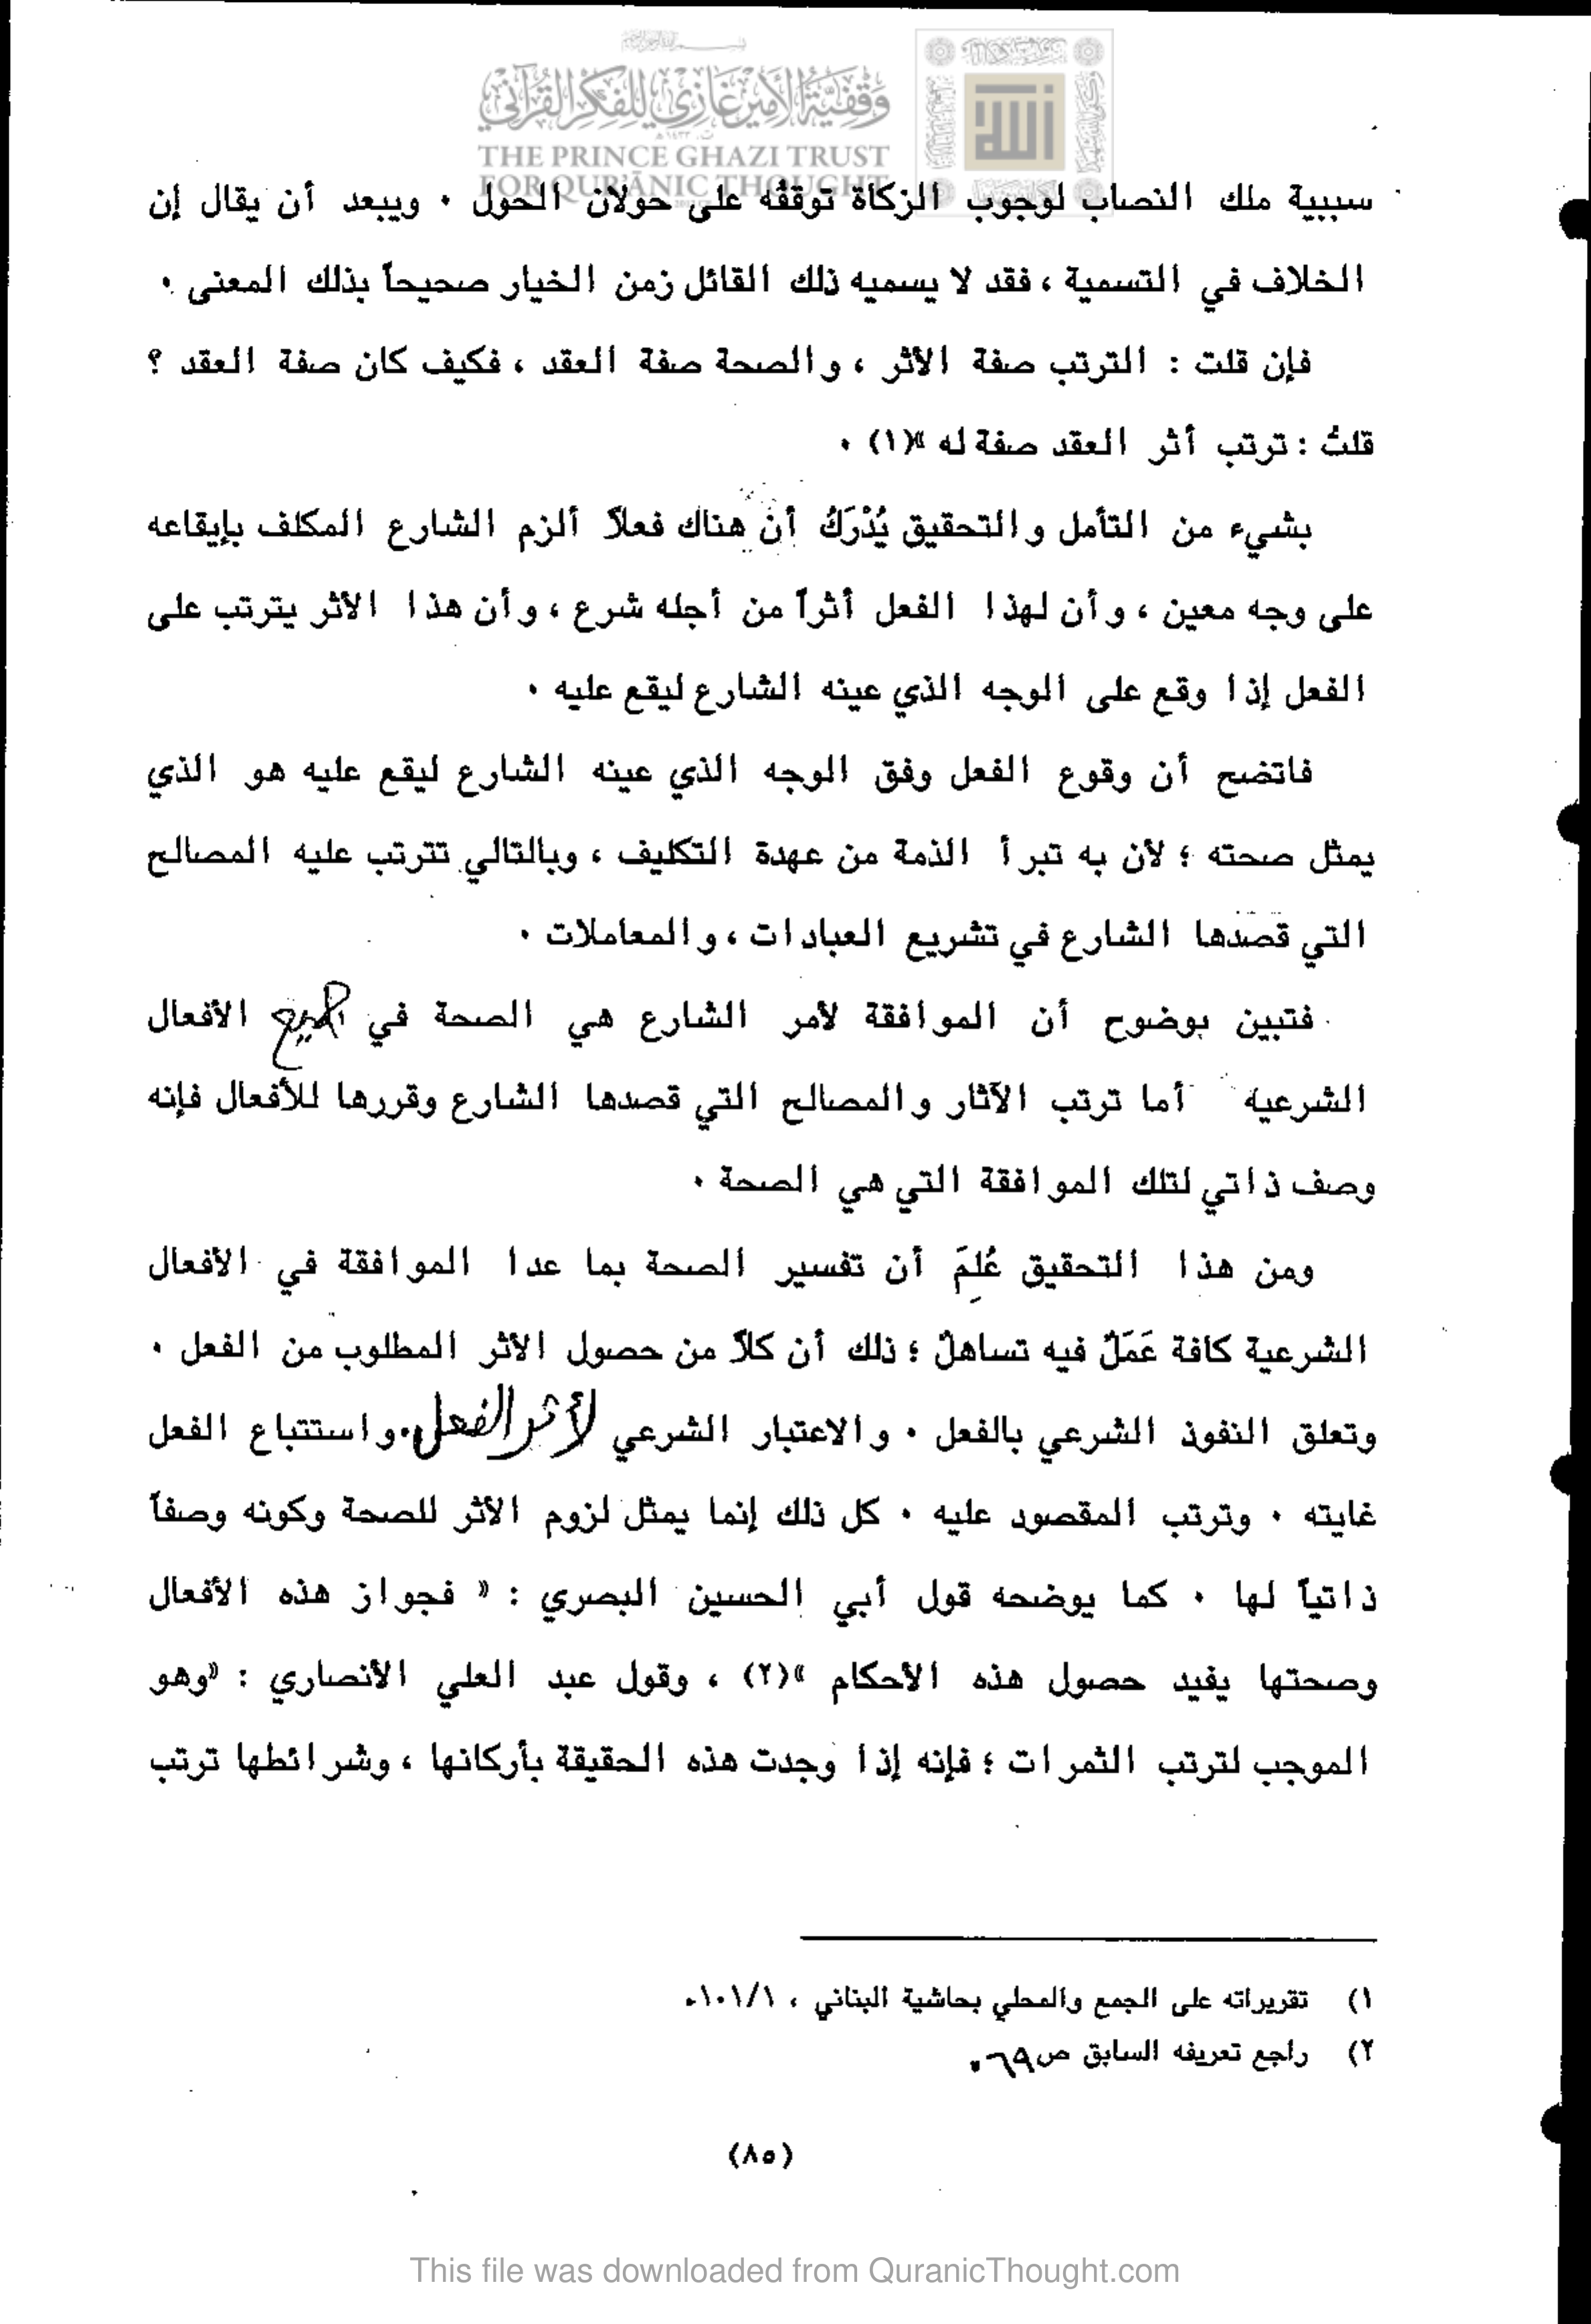 وقفية الأمير غازي للفكر القرآني
THE PRINCE GHAZI TRUST
FOR QUR'ĀNIC THOUGHT
الله
سببية ملك النصاب لوجوب الزكاة توقفُه على حولان الحول ٠ ويبعد أن يقال إن
الخلاف في التسمية ، فقد لا يسميه ذلك القائل زمن الخيار صحيحاً بذلك المعنى ٠
فإن قلت : الترتب صفة الأثر ، والصحة صفة العقد ، فكيف كان صفة العقد ؟
قلتُ : ترتب أثر العقد صفة له »(١) ٠
بشيء من التأمل والتحقيق يُدْرَكُ أن هناك فعلاً ألزم الشارع المكلف بإيقاعه
على وجه معين ، وأن لهذا الفعل أثراً من أجله شرع ، وأن هذا الأثر يترتب على
الفعل إذا وقع على الوجه الذي عينه الشارع ليقع عليه ٠
فاتضح أن وقوع الفعل وفق الوجه الذي عينه الشارع ليقع عليه هو الذي
يمثل صحته ؛ لأن به تبرأ الذمة من عهدة التكليف ، وبالتالي تترتب عليه المصالح
التي قصدها الشارع في تشريع العبادات ، والمعاملات ٠
فتبين بوضوح أن الموافقة لأمر الشارع هي الصحة في جميع الأفعال
الشرعيه أما ترتب الآثار والمصالح التي قصدها الشارع وقررها للأفعال فإنه
وصف ذاتي لتلك الموافقة التي هي الصحة ٠
ومن هذا التحقيق عُلِمَ أن تفسير الصحة بما عدا الموافقة في الأفعال
الشرعية كافة عَمَلٌ فيه تساهلٌ ؛ ذلك أن كلاً من حصول الأثر المطلوب من الفعل ٠
وتعلق النفوذ الشرعي بالفعل ٠ والاعتبار الشرعي لأثر الفعل ٠ واستتباع الفعل
غايته ٠ وترتب المقصود عليه ٠ كل ذلك إنما يمثل لزوم الأثر للصحة وكونه وصفاً
ذاتياً لها ٠ كما يوضحه قول أبي الحسين البصري : « فجواز هذه الأفعال
وصحتها يفيد حصول هذه الأحكام »(٢) ، وقول عبد العلي الأنصاري : «وهو
الموجب لترتب الثمرات ؛ فإنه إذا وجدت هذه الحقيقة بأركانها ، وشرائطها ترتب
١) تقريراته على الجمع والمحلي بحاشية البناني ، ١٠١/١٠
٢) راجع تعريفه السابق ص٦٩٠
(٨٥)
This file was downloaded from QuranicThought.com